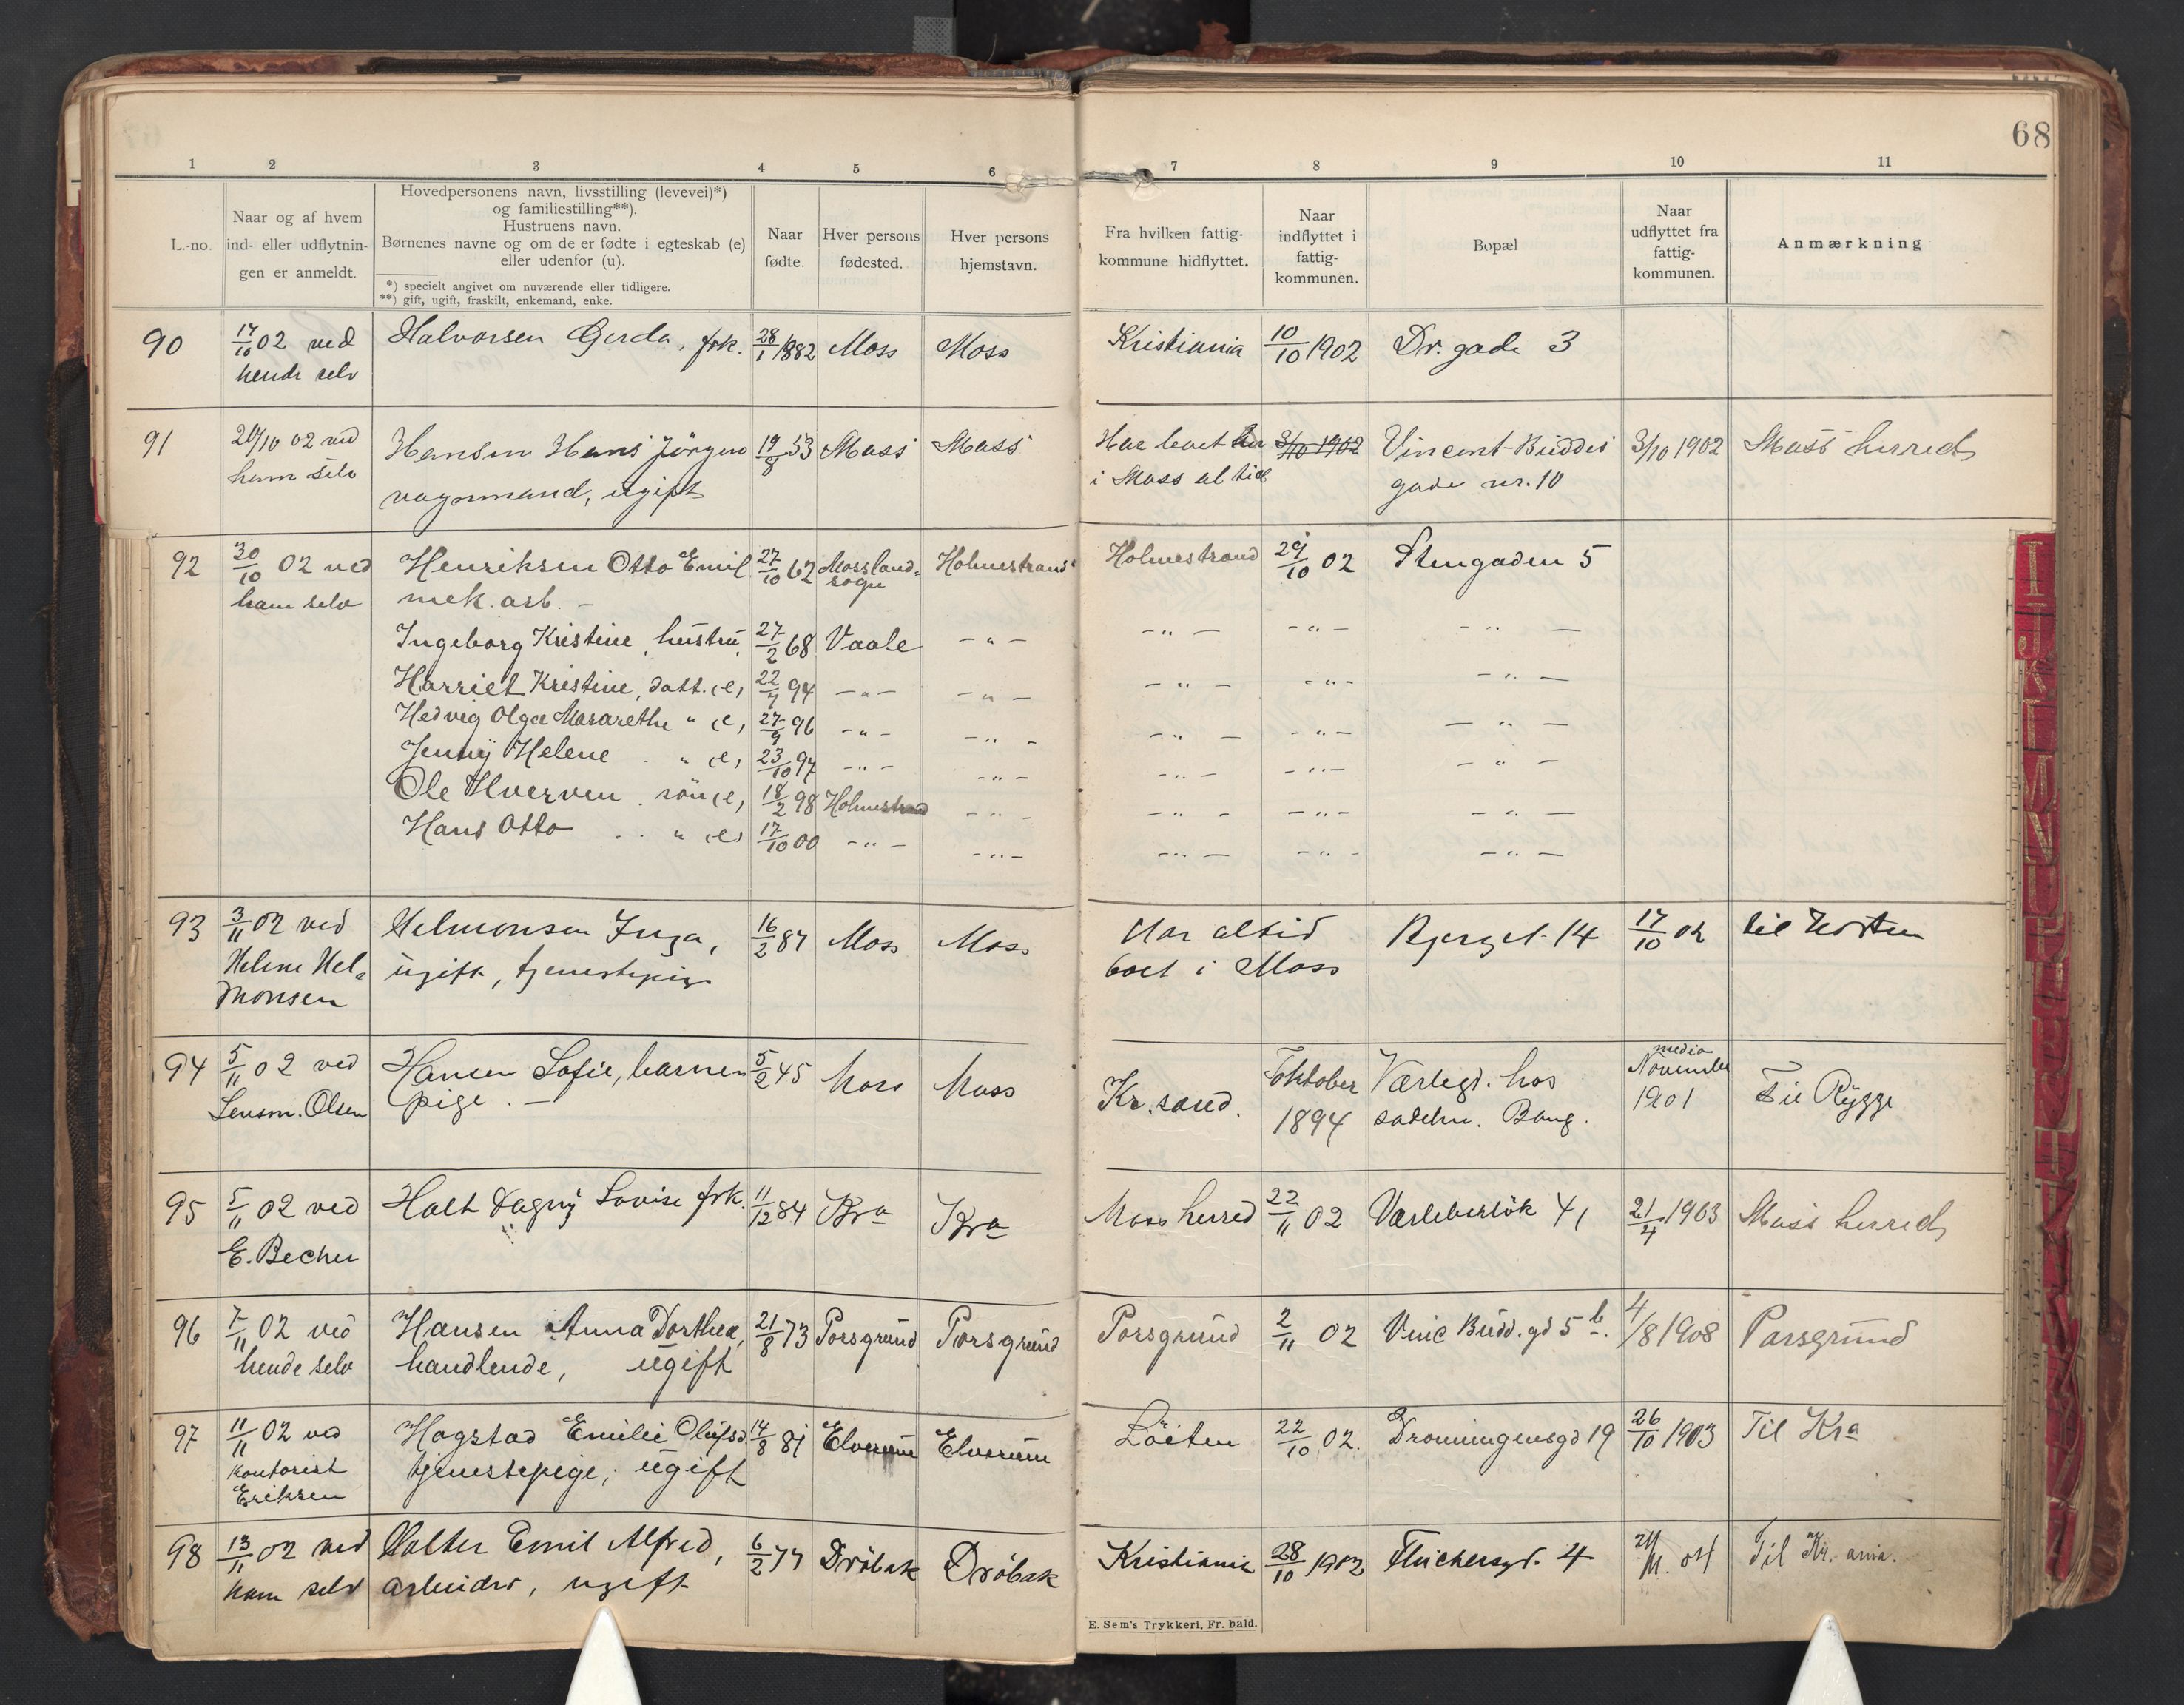 68
1 2 3 4 5 6 7 8 9 10 11
L.-no.
Naar og af hvem
ind- eller udflytnin-
gen er anmeldt.
Hovedpersonens navn, livsstilling (levevei)*)
og familiestilling**).
Hustruens navn.
Børnenes navne og om de er fødte i egteskab (e)
eller udenfor (u).
*) specielt angivet om nuværende eller tidligere.
**) gift, ugift, fraskilt, enkemand, enke.
Naar
fødte.
Hver persons
fødested.
Hver persons
hjemstavn.
Fra hvilken fattig-
kommune hidflyttet.
Naar
indflyttet i
fattig-
kommunen.
Bopæl
Naar
udflyttet fra
fattig-
kommunen.
Anmærkning
90 17/10 02 ved Halvorsen Gerda, frk. 28/1 1882 Moss Moss Kristiania 10/10 1902 Dr. gade 3
hende selv
91 20/10 02 ved Hansen Hans Jörgen 19/8 53 Moss Moss Har levet her 3/10 1902 Vincent Buddes 3/10 1902 Moss herred
ham selv vognmand, ugift i Moss altid gade nr. 10
92 30/10 02 ved Henriksen Otto Emil 27/10 62 Mossland= Holmestrand Holmestrand 29/10 02 Stengaden 5
sogn
ham selv mek. arb. –
Ingeborg Kristine, hustru, 27/2 68 Vaale – " – – " – – " – – " –
Harriet Kristine, datt. (e) 22/7 94 – " – – " – – " – – " – – " –
Hedvig Olga Margrethe " (e) 27/9 96 – " – – " – – " – – " – – " –
Jenny Helene " (e) 23/10 97 – " – – " – – " – – " – – " –
Ole Hverven, sön (e) 18/2 98 Holmestrand – " – – " – – " – – " –
Hans Otto " (e) 17/10 00 – " – – " – – " – – " – – " –
93 3/11 02 ved Helmonsen Inga, 16/2 87 Moss Moss Har altid Bjerget 14 17/10 02 til Horten
Helene Hel= ugift, tjenestepige boet i Moss
monsen
94 5/11 02 ved Hansen Sofie, barnen 5/2 45 Moss Moss Kr.sand. Oktober Værlegt. hos media November Til Rygge
Lensm. Olsen pige. – 1894 sadelm. Bang. 1901
95 5/11 02 ved Holt Dagny Lovise frk. 11/12 84 Kra Kra Moss herred 22/11 02 Værleberlök 41 21/4 1903 Moss herred
E. Becher
96 7/11 02 ved Hansen Anna Dorthea, 21/8 73 Porsgrund Porsgrund Porsgrund 2/11 02 Vinc Budd. gd 5 b. 4/8 1908 Porsgrund
hende selv handlende, ugift
97 11/11 02 ved Hogstad Emilie Olufsd. 14/8 81 Elverum Elverum Löiten 22/10 02. Dronningensgd 19 26/10 1903 Til Kra
kontorist tjenestepige, ugift
Eriksen
98 13/11 02 ved Holter Emil Alfred, 6/2 77 Dröbak Dröbak Kristiania 28/10 1902 4 04 Til Kr. ania.
ham selv arbeider, ugift
E. Sem's Trykkeri, Fr. hald.